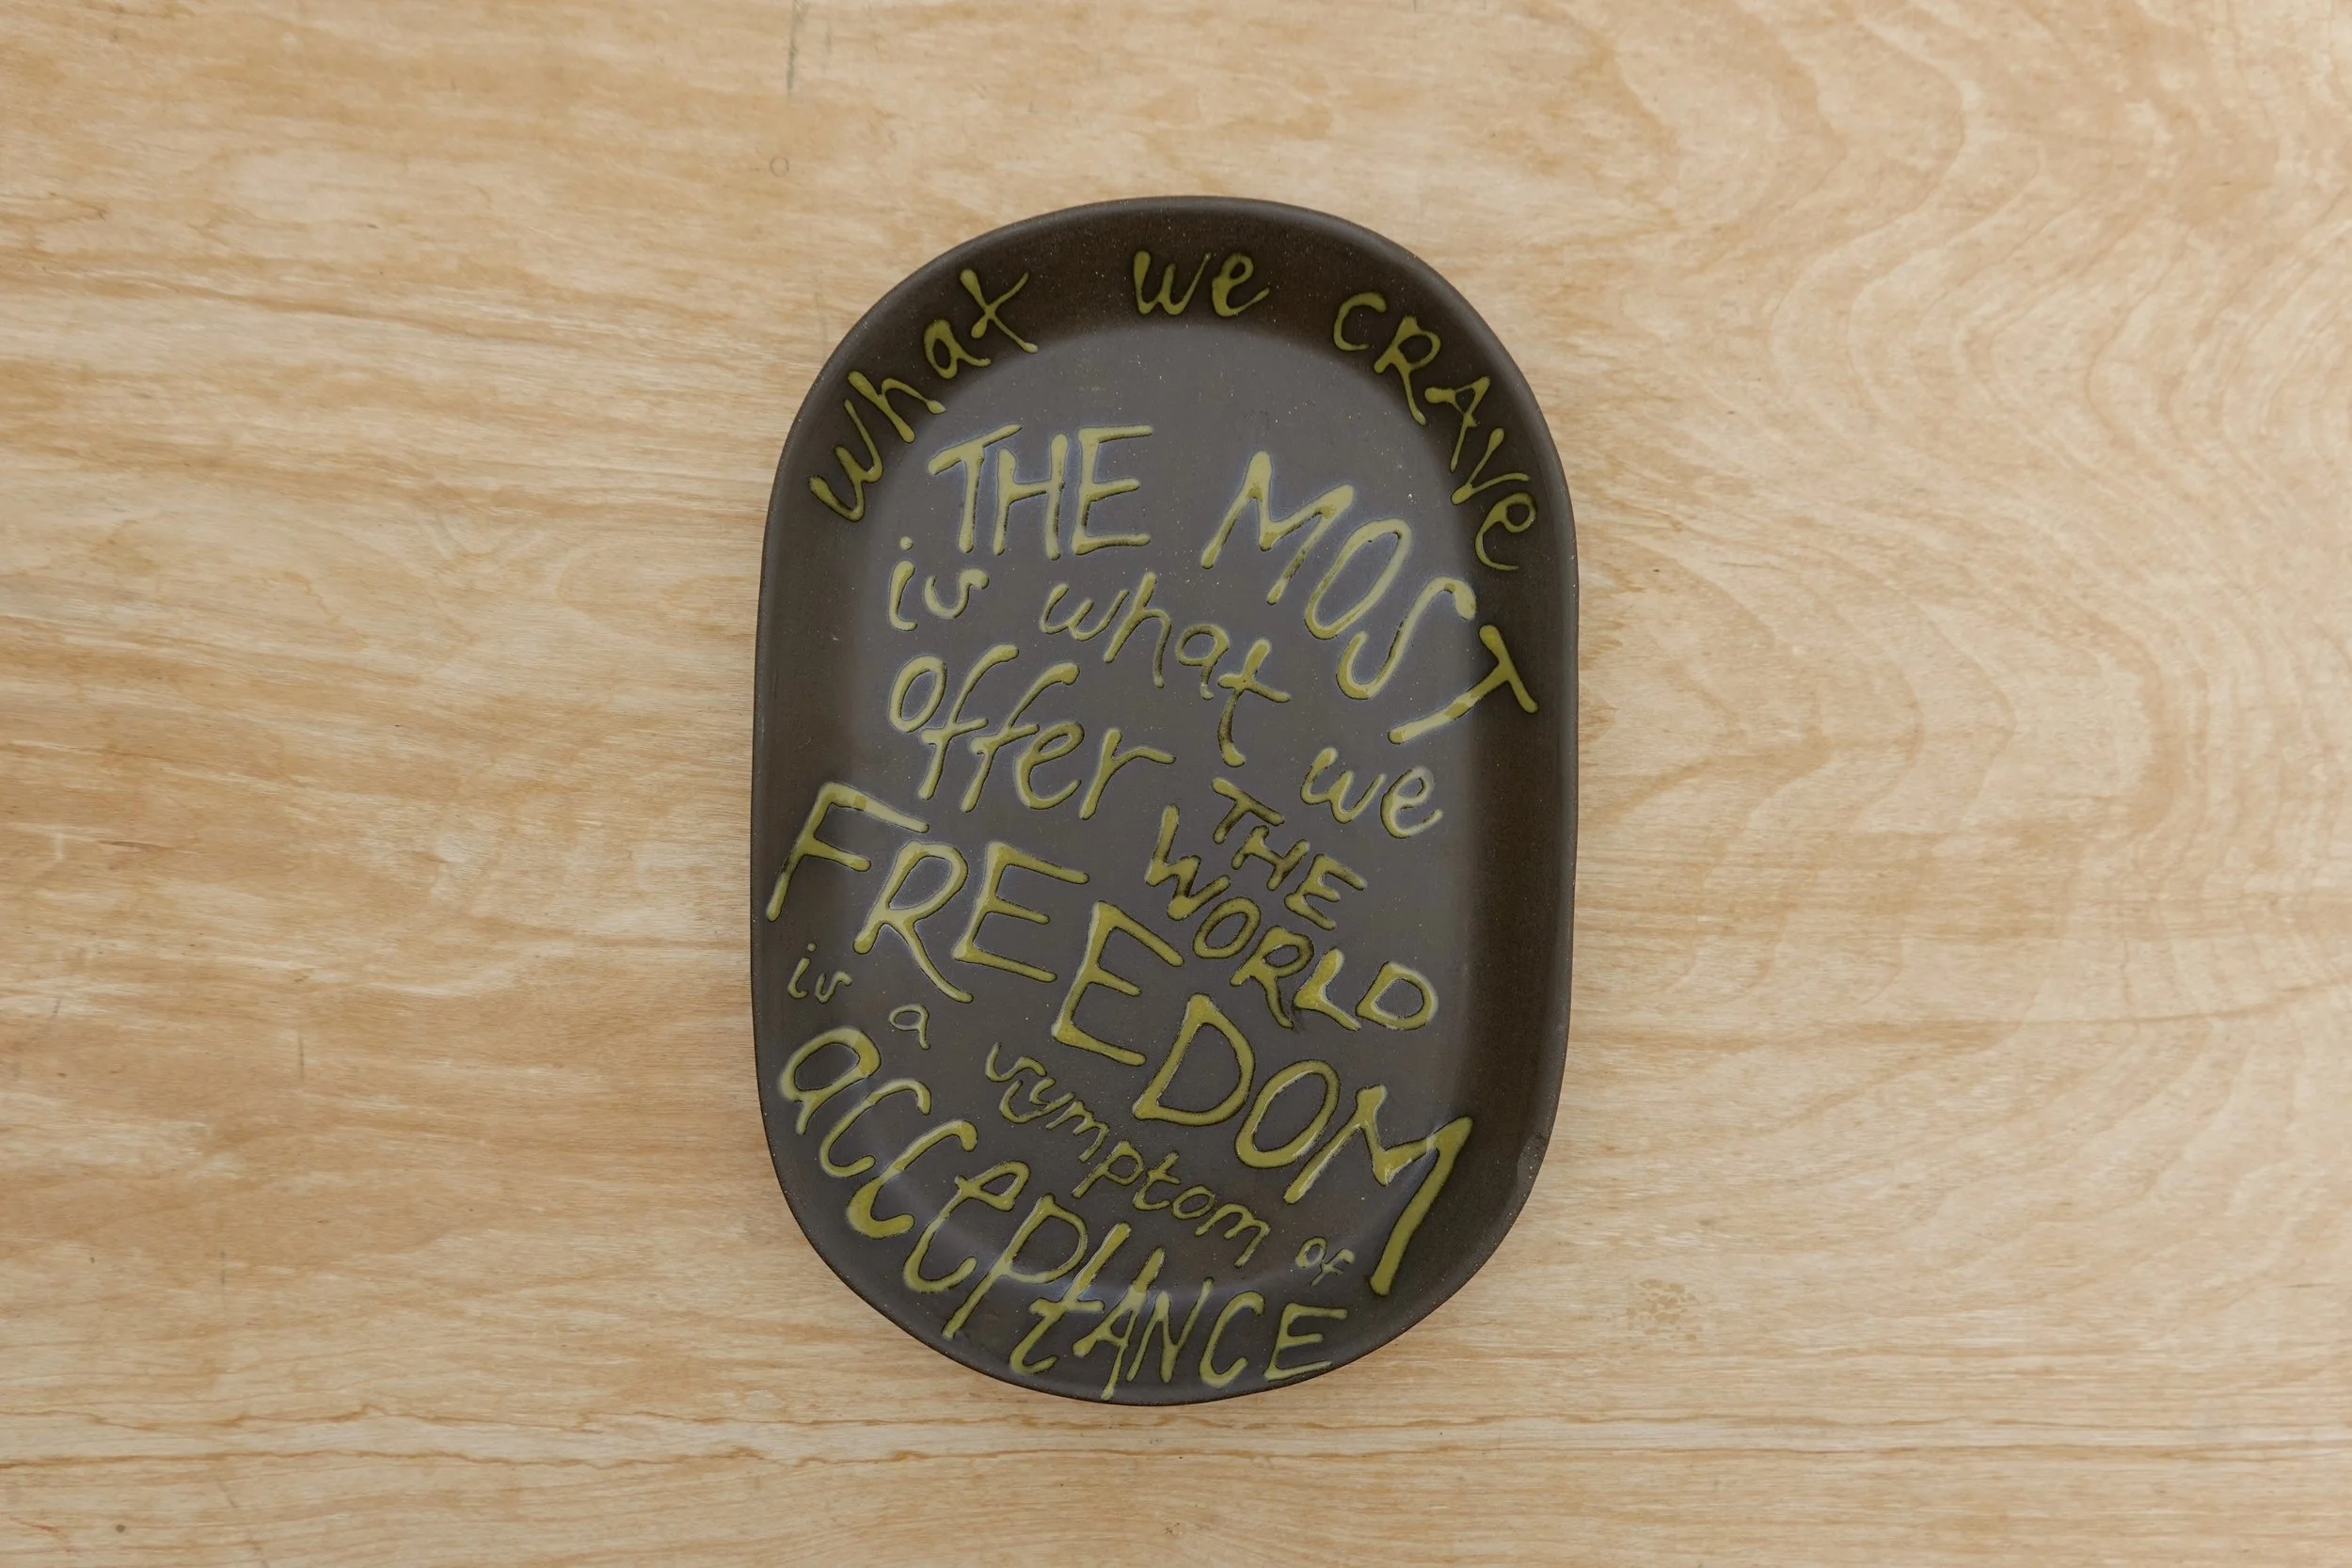 what we CRAVe
THE MOST
is what we
offer THE
WORLD
FREEDOM
is a symptom of
acceptANCE